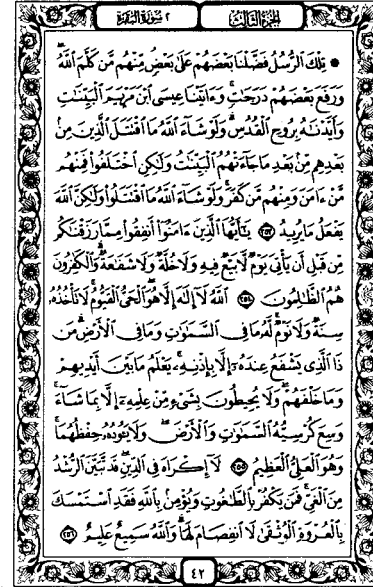 الجزء الثالث
٢ سورة البقرة
۞ تِلْكَ ٱلرُّسُلُ فَضَّلْنَا بَعْضَهُمْ عَلَىٰ بَعْضٍ مِّنْهُم مَّن كَلَّمَ ٱللَّهُ
وَرَفَعَ بَعْضَهُمْ دَرَجَٰتٍ وَءَاتَيْنَا عِيسَى ٱبْنَ مَرْيَمَ ٱلْبَيِّنَٰتِ
وَأَيَّدْنَٰهُ بِرُوحِ ٱلْقُدُسِ وَلَوْ شَآءَ ٱللَّهُ مَا ٱقْتَتَلَ ٱلَّذِينَ مِنۢ
بَعْدِهِم مِّنۢ بَعْدِ مَا جَآءَتْهُمُ ٱلْبَيِّنَٰتُ وَلَٰكِنِ ٱخْتَلَفُوا۟ فَمِنْهُم
مَّنْ ءَامَنَ وَمِنْهُم مَّن كَفَرَ وَلَوْ شَآءَ ٱللَّهُ مَا ٱقْتَتَلُوا۟ وَلَٰكِنَّ ٱللَّهَ
يَفْعَلُ مَا يُرِيدُ ٢٥٣ يَٰٓأَيُّهَا ٱلَّذِينَ ءَامَنُوٓا۟ أَنفِقُوا۟ مِمَّا رَزَقْنَٰكُم
مِّن قَبْلِ أَن يَأْتِىَ يَوْمٌ لَّا بَيْعٌ فِيهِ وَلَا خُلَّةٌ وَلَا شَفَٰعَةٌ وَٱلْكَٰفِرُونَ
هُمُ ٱلظَّٰلِمُونَ ٢٥٤ ٱللَّهُ لَآ إِلَٰهَ إِلَّا هُوَ ٱلْحَىُّ ٱلْقَيُّومُ لَا تَأْخُذُهُۥ
سِنَةٌ وَلَا نَوْمٌ لَّهُۥ مَا فِى ٱلسَّمَٰوَٰتِ وَمَا فِى ٱلْأَرْضِ مَن
ذَا ٱلَّذِى يَشْفَعُ عِندَهُۥٓ إِلَّا بِإِذْنِهِۦ يَعْلَمُ مَا بَيْنَ أَيْدِيهِمْ
وَمَا خَلْفَهُمْ وَلَا يُحِيطُونَ بِشَىْءٍ مِّنْ عِلْمِهِۦٓ إِلَّا بِمَا شَآءَ
وَسِعَ كُرْسِيُّهُ ٱلسَّمَٰوَٰتِ وَٱلْأَرْضَ وَلَا يَـُٔودُهُۥ حِفْظُهُمَا
وَهُوَ ٱلْعَلِىُّ ٱلْعَظِيمُ ٢٥٥ لَآ إِكْرَاهَ فِى ٱلدِّينِ قَد تَّبَيَّنَ ٱلرُّشْدُ
مِنَ ٱلْغَىِّ فَمَن يَكْفُرْ بِٱلطَّٰغُوتِ وَيُؤْمِنۢ بِٱللَّهِ فَقَدِ ٱسْتَمْسَكَ
بِٱلْعُرْوَةِ ٱلْوُثْقَىٰ لَا ٱنفِصَامَ لَهَا وَٱللَّهُ سَمِيعٌ عَلِيمٌ ٢٥٦
٤٢